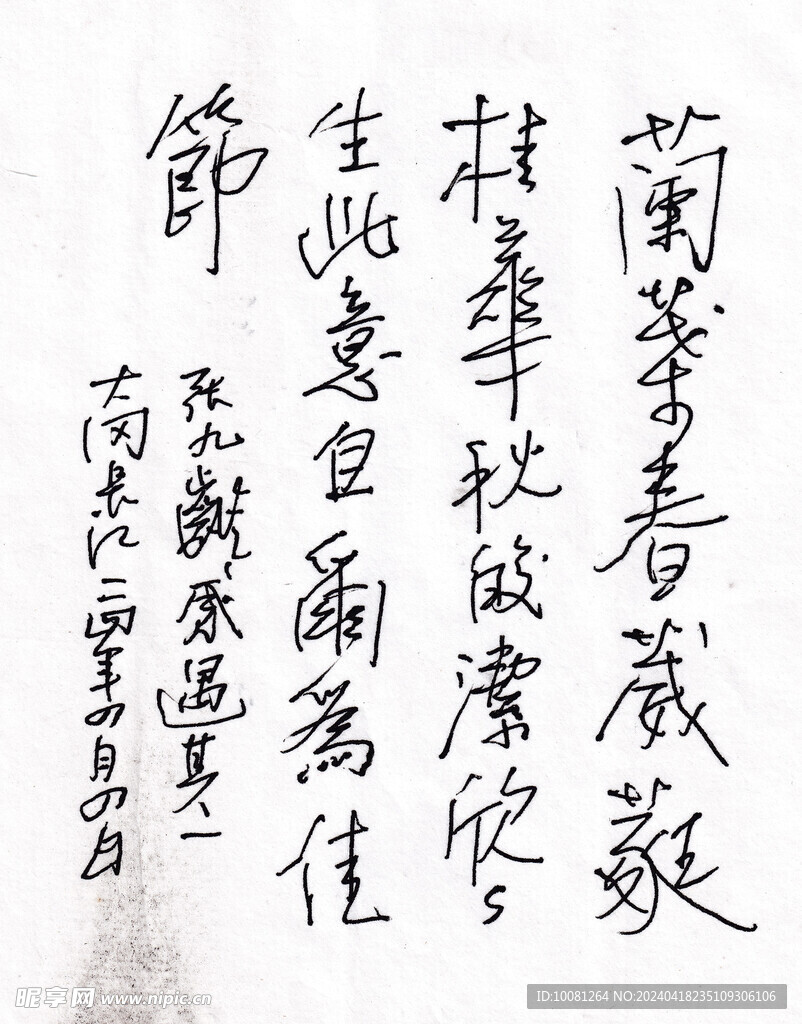 蘭葉春葳蕤
桂華秋皎潔欣々
生此意自爾為佳
節
张九齡感遇其一
大岡長江二四年四月四日
昵享网 www.nipic.cn
ID:10081264 NO:20240418235109306106